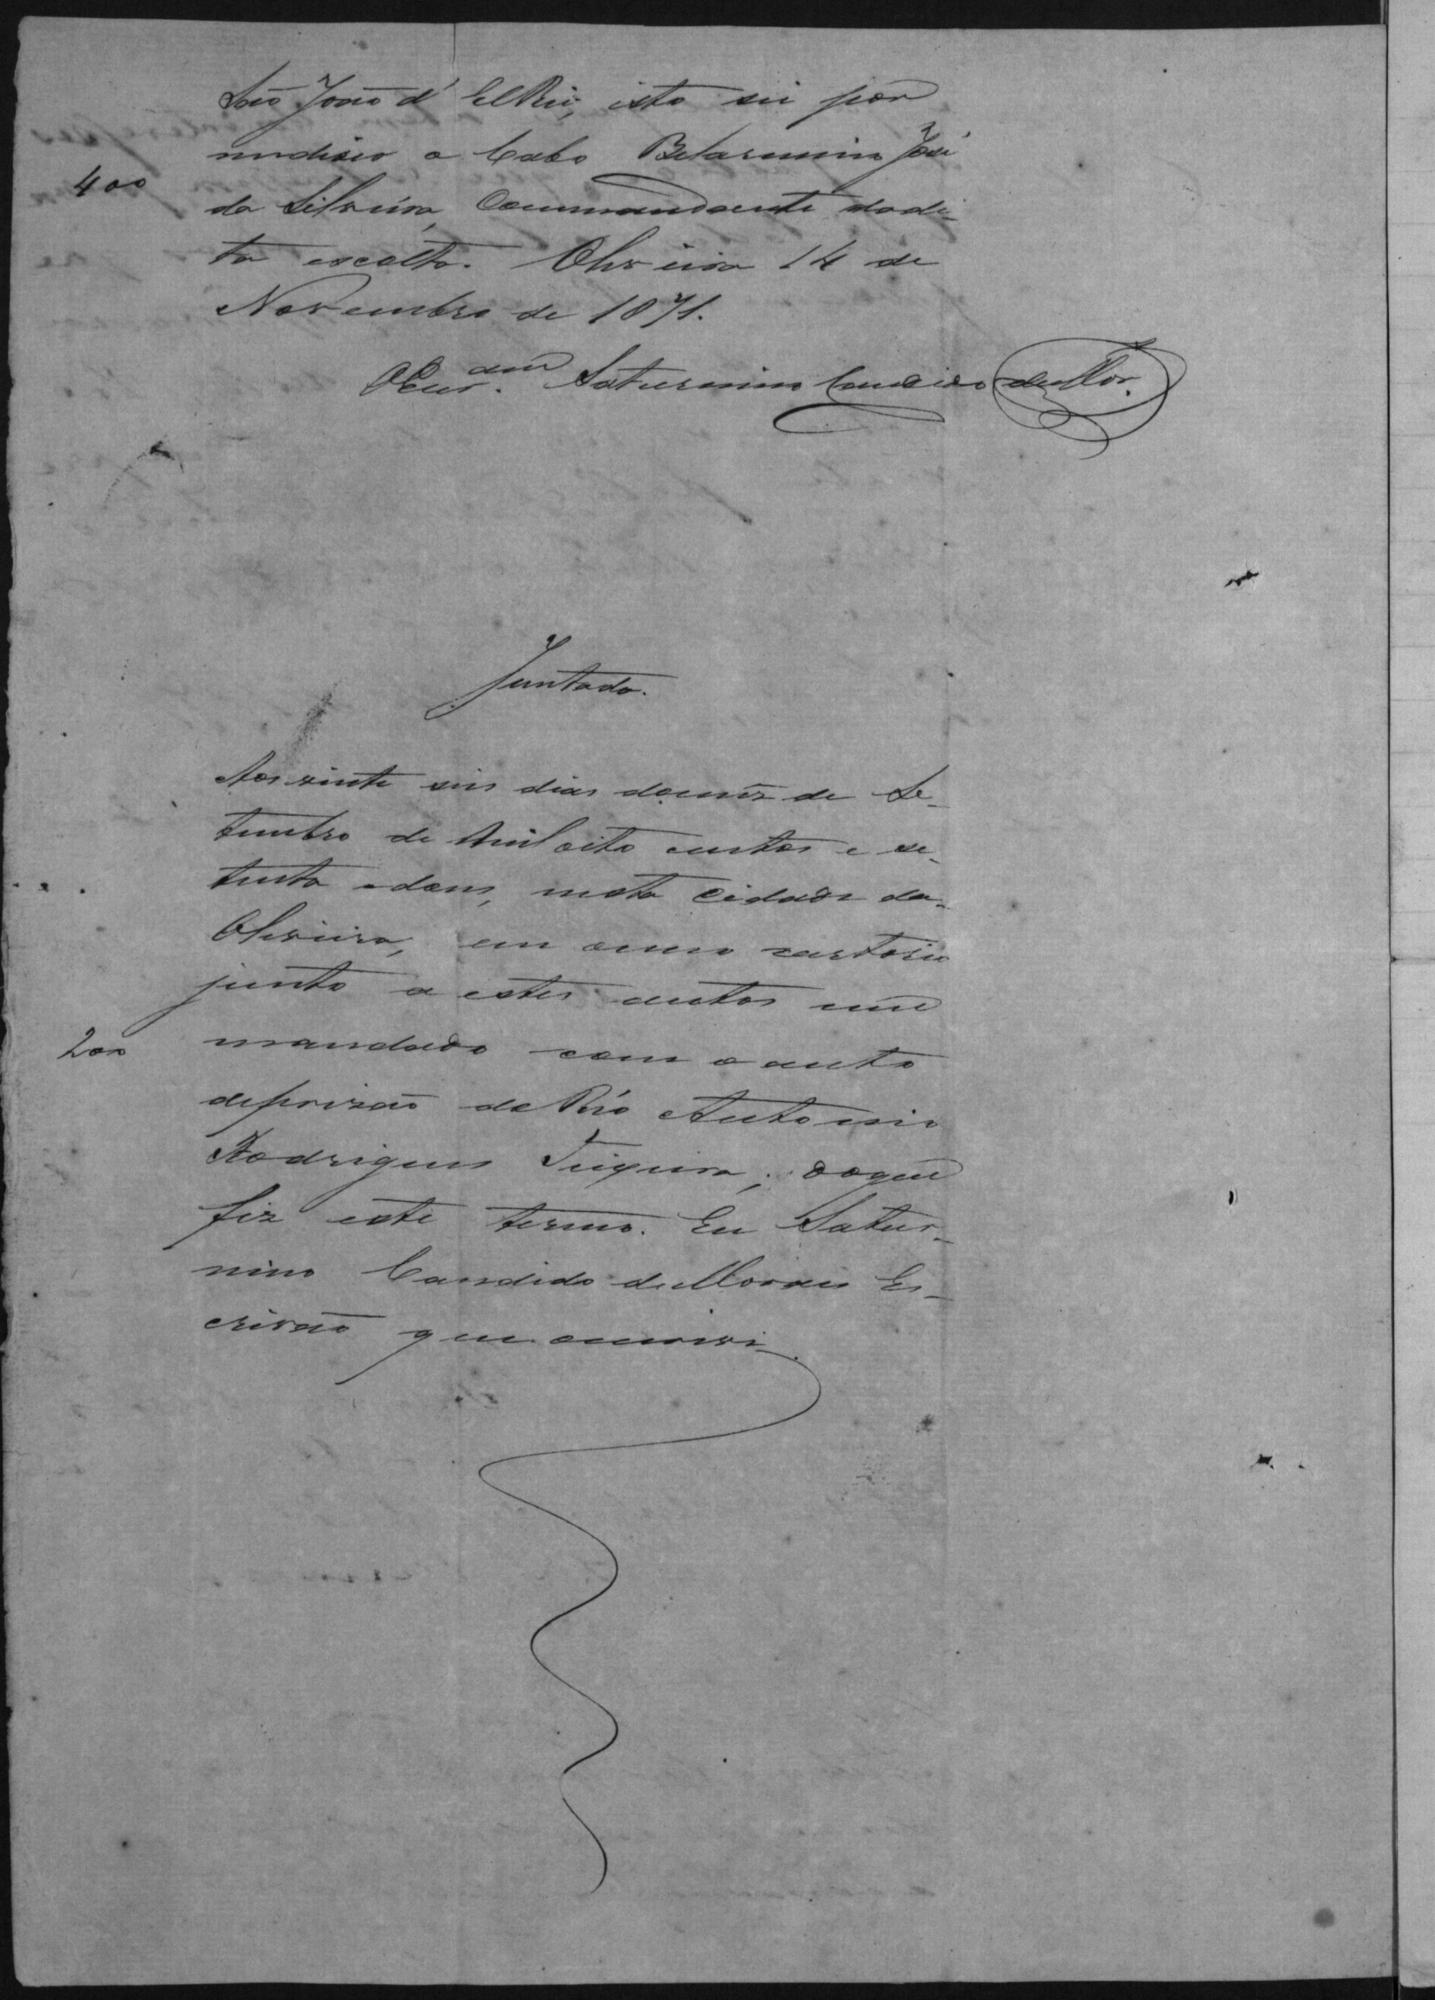 São João d'ElRei, isto sei por
me diser o Cabo Belarmino José
400
da Silveira, Commandante da di-
ta escolta. Oliveira 14 de
Novembro de 1871.
O Escr.am Saturnino Candido de Mor.
Juntada.
Aos vinte seis dias do mez de Se-
tembro de mil oito centos e se-
tenta e dous, nesta Cidade da
Oliveira, em o meu cartorio
junto a estes autos um
200
mandado com o auto
de prizão do Réo Antonio
Rodrigues Teixeira; do que
fiz este termo. Eu Satur-
nino Candido de Moraes Es-
crivão que o escrevi.